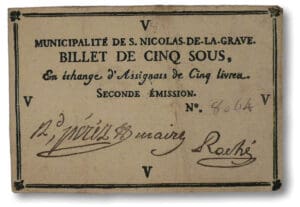 V
MUNICIPALITÉ DE S. NICOLAS-DE-LA-GRAVE.
BILLET DE CINQ SOUS,
En échange d'Assignats de Cinq livres.
SECONDE ÉMISSION.
V V
N°. 8064
maire Roché
V